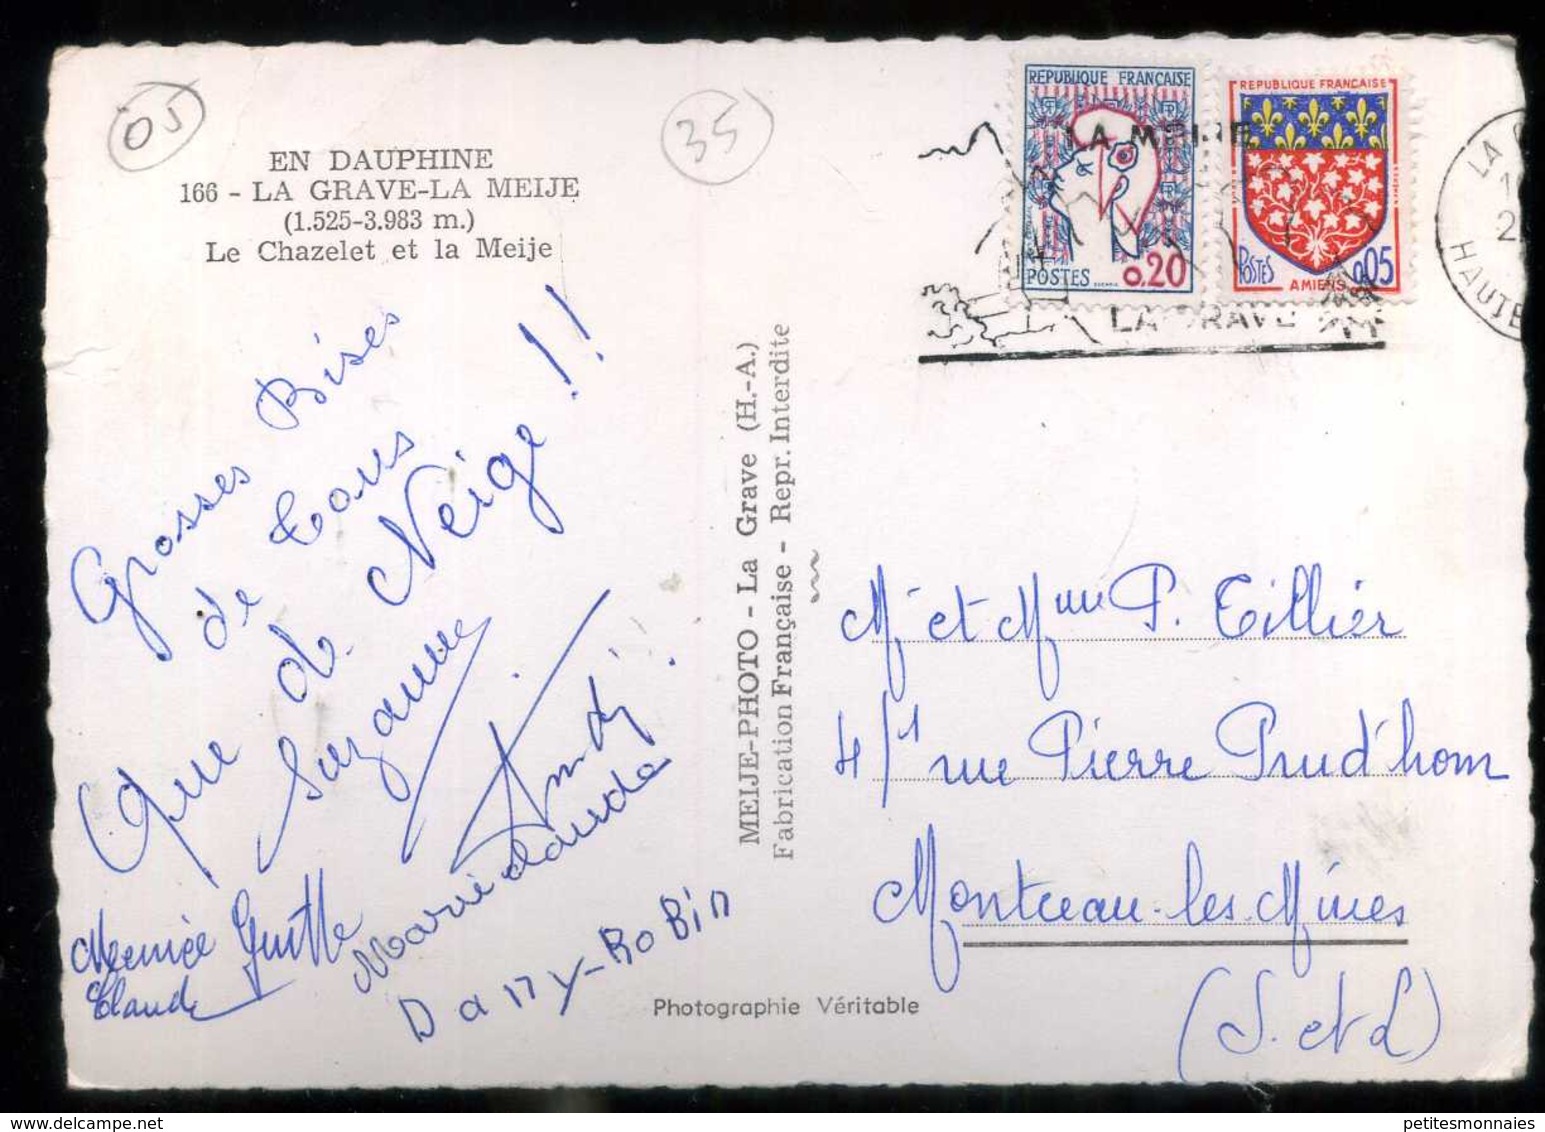 05
35
EN DAUPHINE
166 - LA GRAVE-LA MEIJE
(1.525-3.983 m.)
Le Chazelet et la Meije
REPUBLIQUE FRANÇAISE
POSTES 0,20
REPUBLIQUE FRANÇAISE
POSTES 0,05
AMIENS
LA MEIJE
LA GRAVE
LA
HAUTE
Grosses Bises
de tous
Que de Neige!!
Suzanne
Andy
Marie Claude
Guitte
Claude
Dany-RoBin
MEIJE-PHOTO - La Grave (H.-A.)
Fabrication Française - Repr. Interdite
Photographie Véritable
Mr et Mme P. Tillier
4/1 rue Pierre Prud'hom
Montceau-les-Mines
(S. et L)
petitesmonnaies